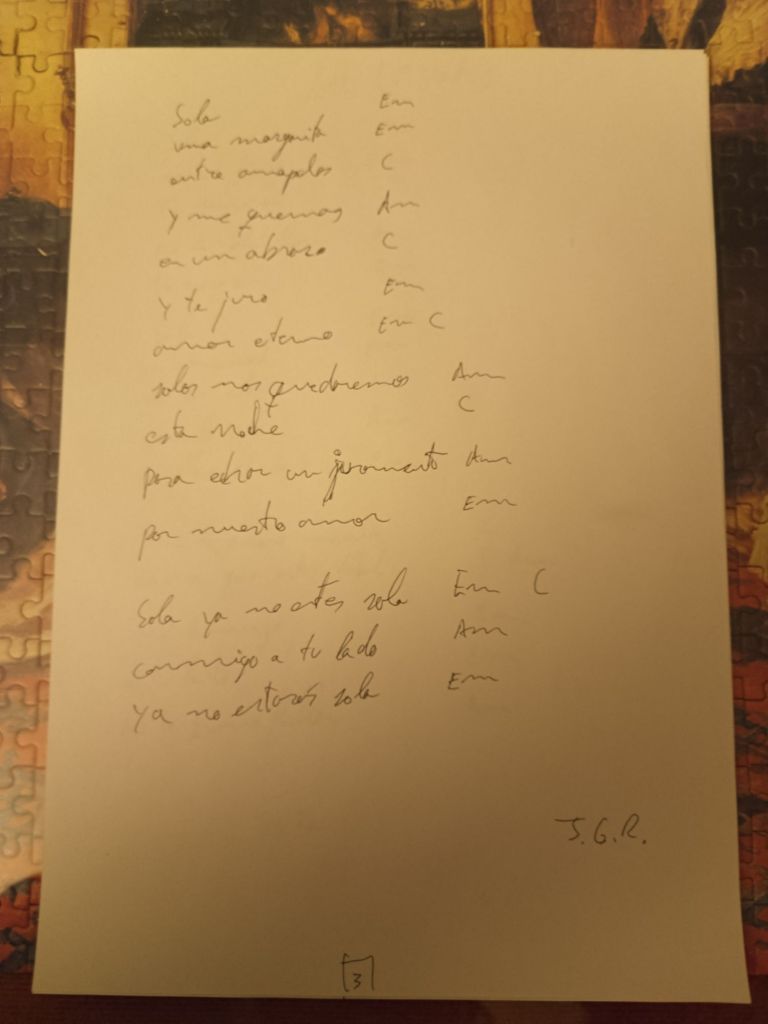 Sola Em
una margarita Em
entre amapolas C
y nos quemamos Am
en un abrazo C
y te juro Em
amor eterno Em C
solos nos quedaremos Am
esta noche C
para echar un juramento Am
por nuestro amor Em
Sola ya no estés sola Em C
conmigo a tu lado Am
ya no estarás sola Em
J.G.R.
3